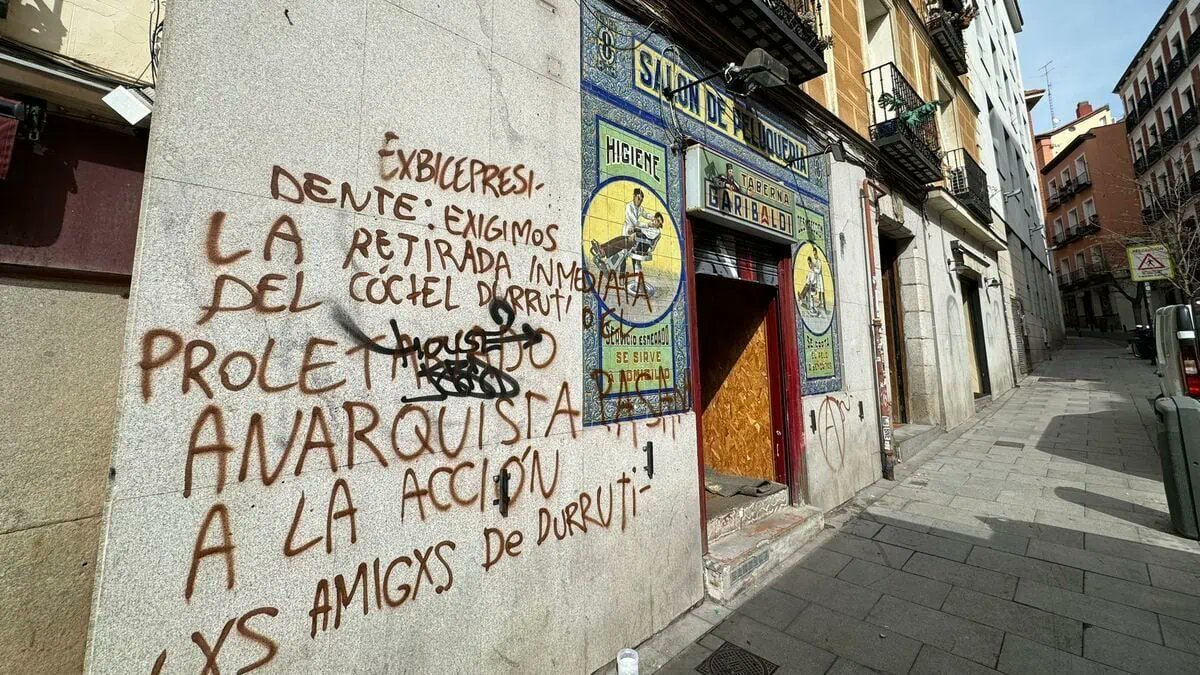 EXBICEPRESI-
DENTE: EXIGIMOS
LA RETIRADA INMEDIATA
DEL CÓCTEL DURRUTI O EL
PROLETARIADO
ANARQUISTA PASARÁ
A LA ACCIÓN
LXS AMIGXS De DURRUTI-
SALON DE PELUQUERIA
HIGIENE
SERVICIO ESMERADO
SE SIRVE
A DOMICILIO
TABERNA
GARIBALDI
SE CORTA
EL PELO
A